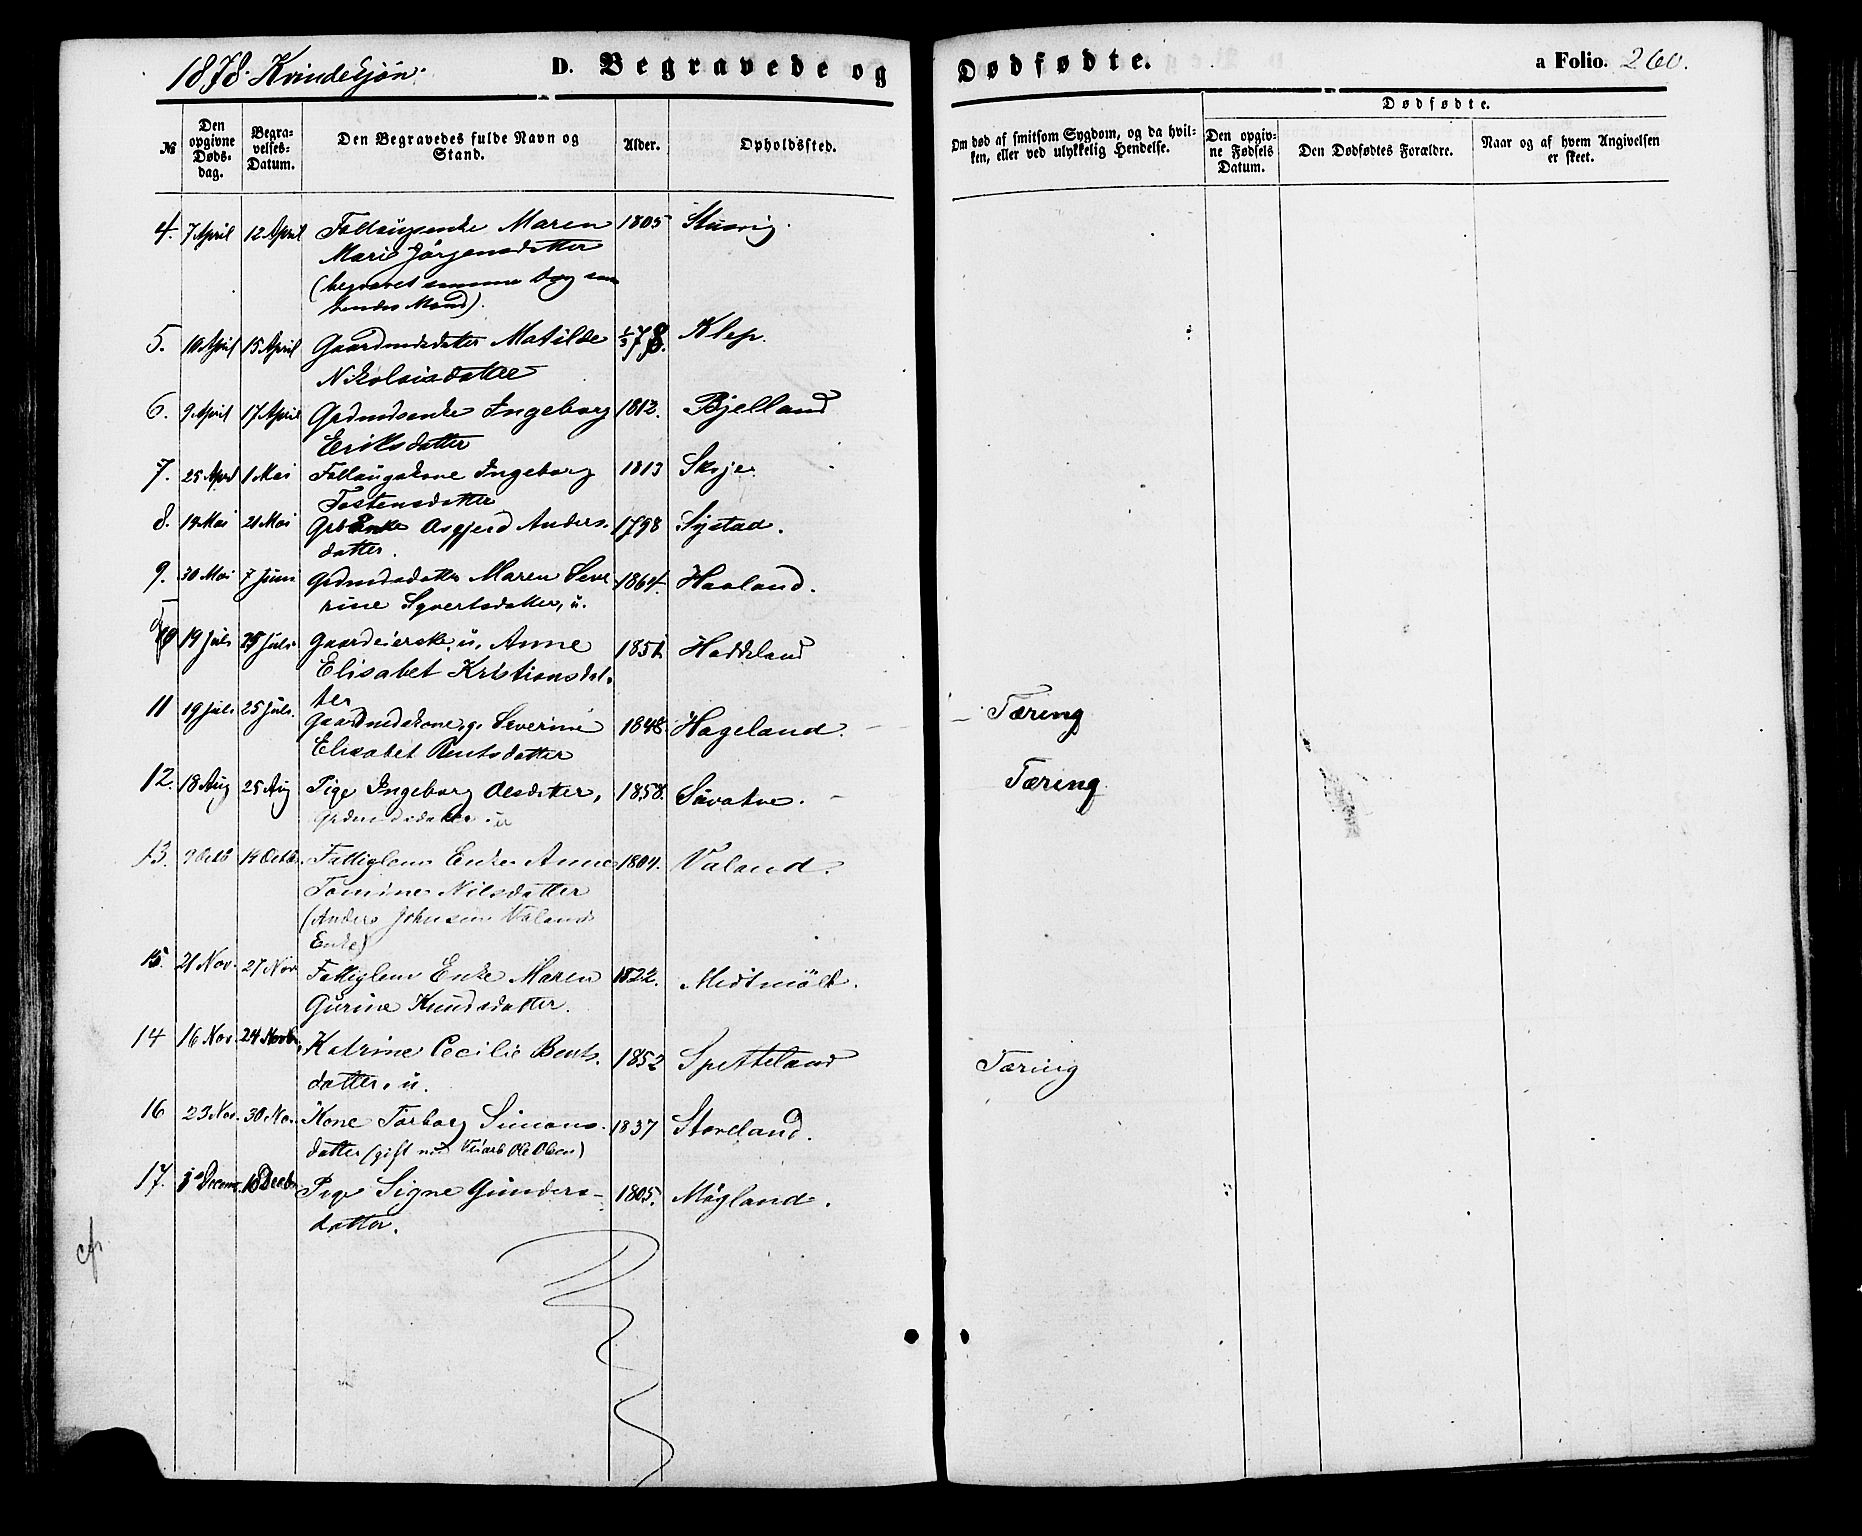 1878. Kvindekjøn. D. Begravede og Dødfødte. a Folio. 260.
№
Den opgivne Døds-dag.
Begra-velses-Datum.
Den Begravedes fulde Navn og Stand.
Alder.
Opholdssted.
Om død af smitsom Sygdom, og da hvil-
ken, eller ved ulykkelig Hendelse.
Dødfødte.
Den opgiv-
ne Fødsels
Datum.
Den Dødfødtes Forældre.
Naar og af hvem Angivelsen
er skeet.
4. 7 April 12 April Maren 1805 Stusvig.
Marie Jörgensdatter
(begravet samme Dag som
hendes Mand).
5. 10 April 15 April Matilde 78. Klep.
Nikolaisdatter
6. 9 April 17 April Grdmdsenke Ingeborg 1812. Bjelland
Eriksdatter
7. 25 April 1 Mai Ingeborg 1813 Skoje.
Tostensdatter
8. 19 Mai 21 Mai Enke Asgjerd Anders- 1798 Systad.
datter.
9. 30 Mai 7 Juni Grdmdsdatter Maren Seve 1864. Haaland.
rine Syvertsdatter, u.
10 19 Juli 25 Juli Gaardeierske, u. Anne 1851 Haddeland
Elisabet Kristiansdat-
ter
11 19 Juli 25 Juli. Gaardmdskone, g. Severine 1848. Hageland. Tæring
Elisabet Bentsdatter
12. 18 Aug 25 Aug Pige Ingeborg Olsdatter, 1858. Tæring
Grdmdsdatter u
13. 9 Octb 14 Octb. Fattiglem Enke Anne 1804. Valand.
Tomine Nilsdatter
(Anders Johnsen Valands
Enke)
15. 21 Nov. 27 Nov Fattiglem Enke Maren 1822. Midtmölt.
Gurine Knudsdatter.
14 16 Nov. 24 Novbr. Katrine Cecilie Bents- 1852 Spetteland Tæring
datter, u.
16 23 Nov. 30 Nov. Kone Torborg Simons- 1837 Storeland.
datter (gift med Ole Olsen)
17. Decem. 18 Decbr Pige Signe Gunders- 1805. Møgland.
datter.